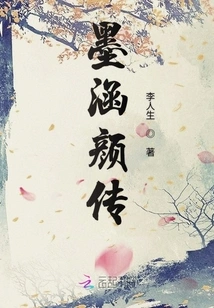 墨涵颜传
李人生 著